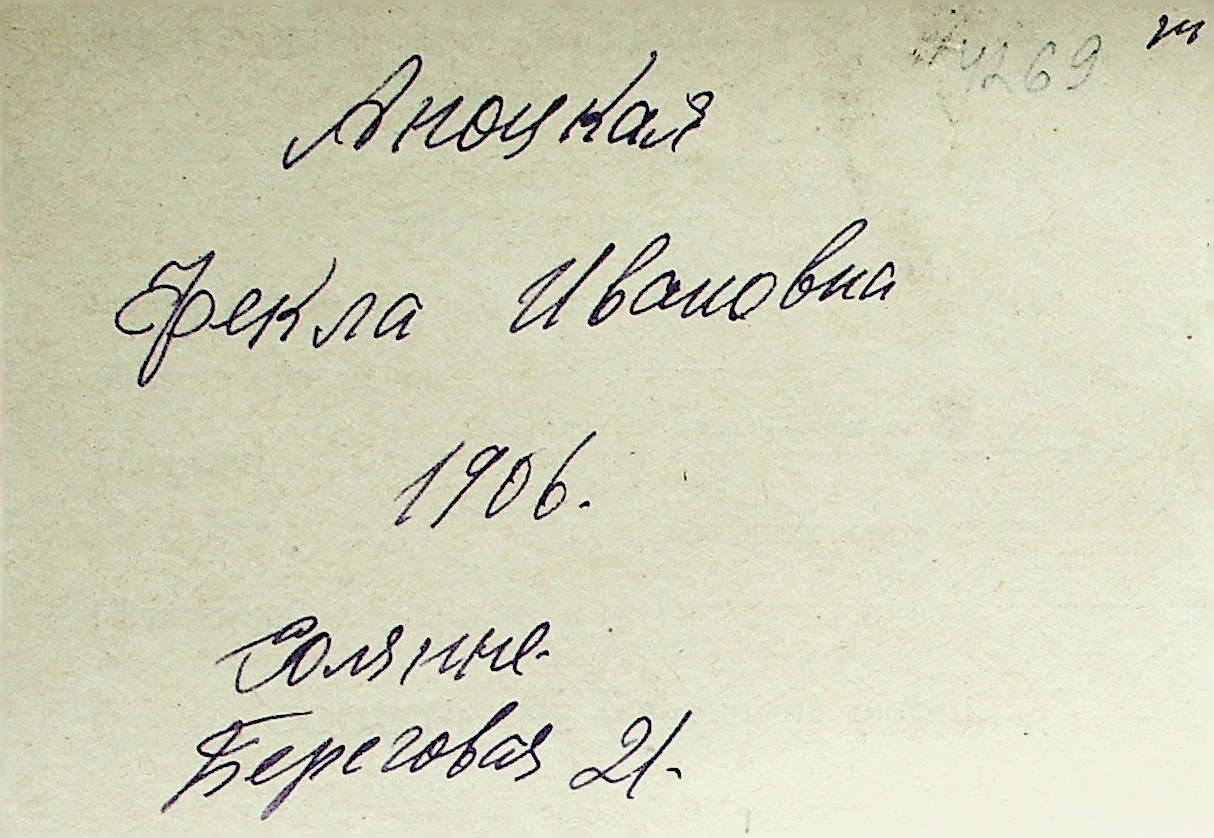 4269
Аноцкая
Фекла Ивановна
1906.
Солянне.
Береговая 21.